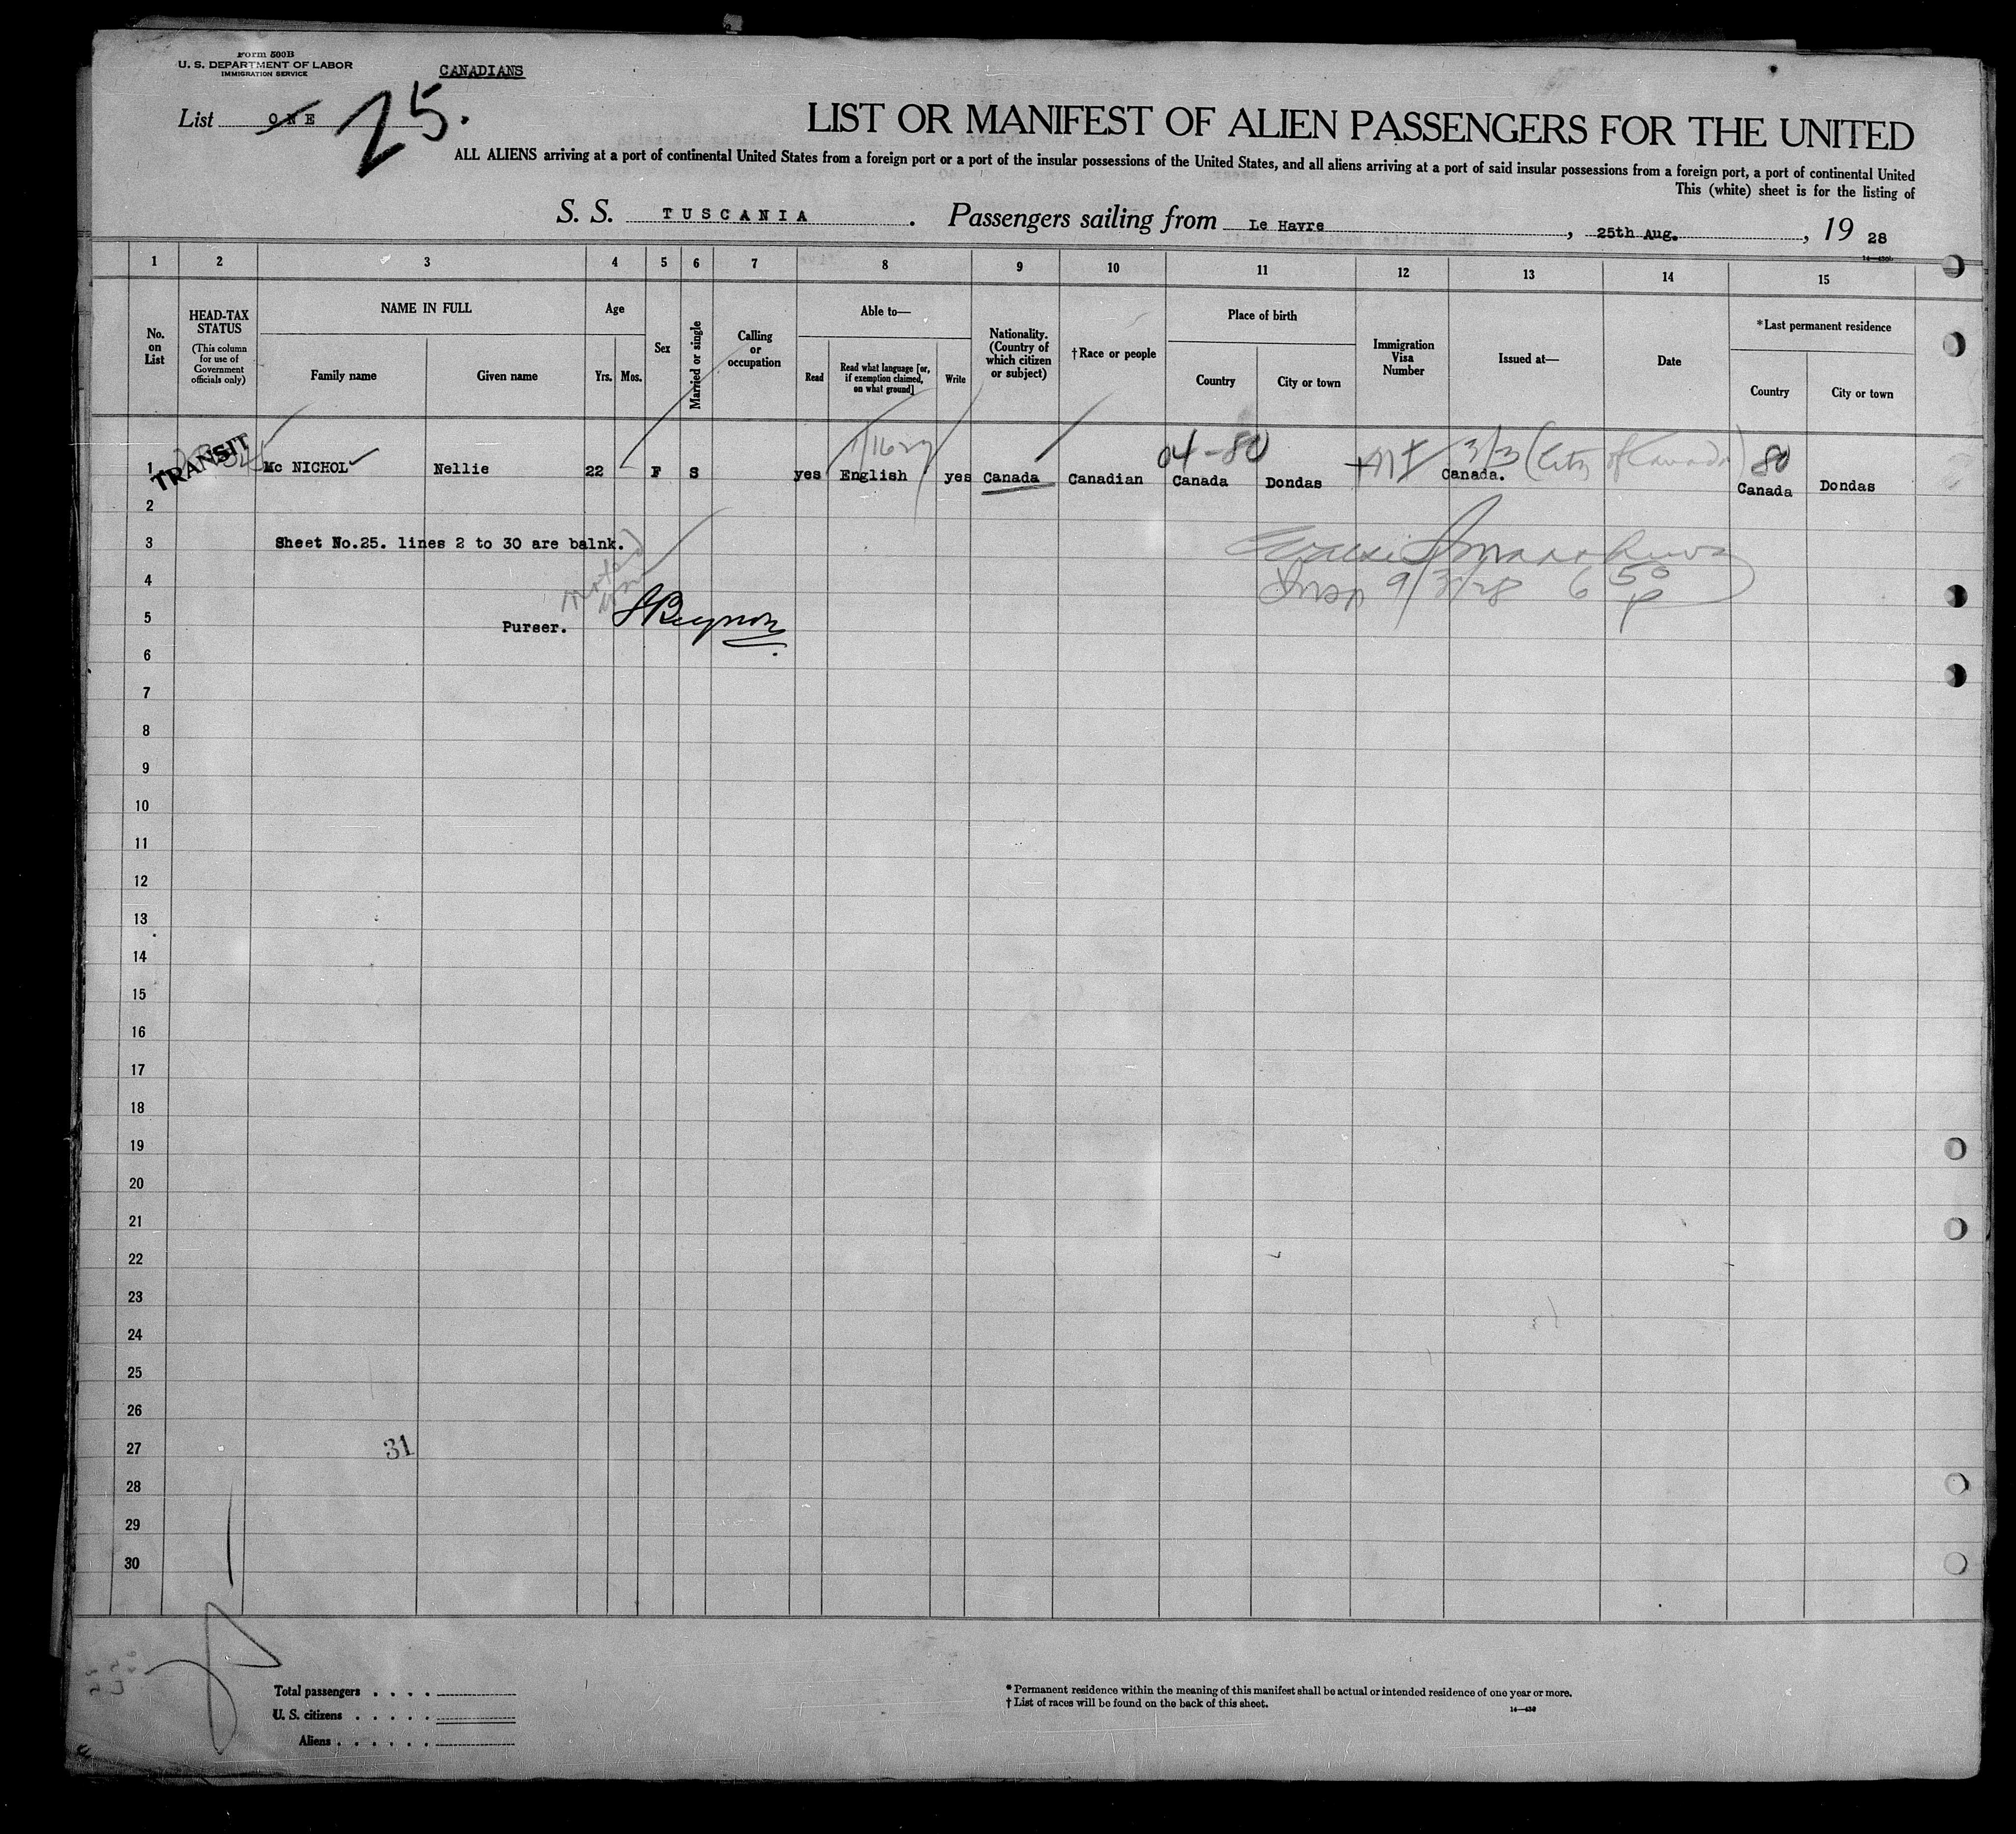 Form 500B
U. S. DEPARTMENT OF LABOR
IMMIGRATION SERVICE
CANADIANS
List ONE 25.
LIST OR MANIFEST OF ALIEN PASSENGERS FOR THE UNITED
ALL ALIENS arriving at a port of continental United States from a foreign port or a port of the insular possessions of the United States, and all aliens arriving at a port of said insular possessions from a foreign port, a port of continental United
This (white) sheet is for the listing of
S. S. TUSCANIA. Passengers sailing from Le Havre, 25th Aug., 19 28
1 2 3 4 5 6 7 8 9 10 11 12 13 14 15
No. on List
HEAD-TAX STATUS
(This column for use of Government officials only)
NAME IN FULL
Family name
Given name
Age
Yrs.
Mos.
Sex
Married or single
Calling or occupation
Able to—
Read
Read what language [or, if exemption claimed, on what ground]
Write
Nationality. (Country of which citizen or subject)
†Race or people
Place of birth
Country
City or town
Immigration Visa Number
Issued at—
Date
*Last permanent residence
Country
City or town
04-80
3/3
80
1 TRANSIT Mc NICHOL Nellie 22 F S yes English yes Canada Canadian Canada Dondas Canada. Canada Dondas
2
3 Sheet No.25. lines 2 to 30 are balnk.
4
Insp 9/3/28
5 Purser.
6
7
8
9
10
11
12
13
14
15
16
17
18
19
20
21
22
23
24
25
26
27 31
28
29
30
Total passengers . . . .
U. S. citizens . . . . .
Aliens . . . . . .
* Permanent residence within the meaning of this manifest shall be actual or intended residence of one year or more.
† List of races will be found on the back of this sheet.
14—430